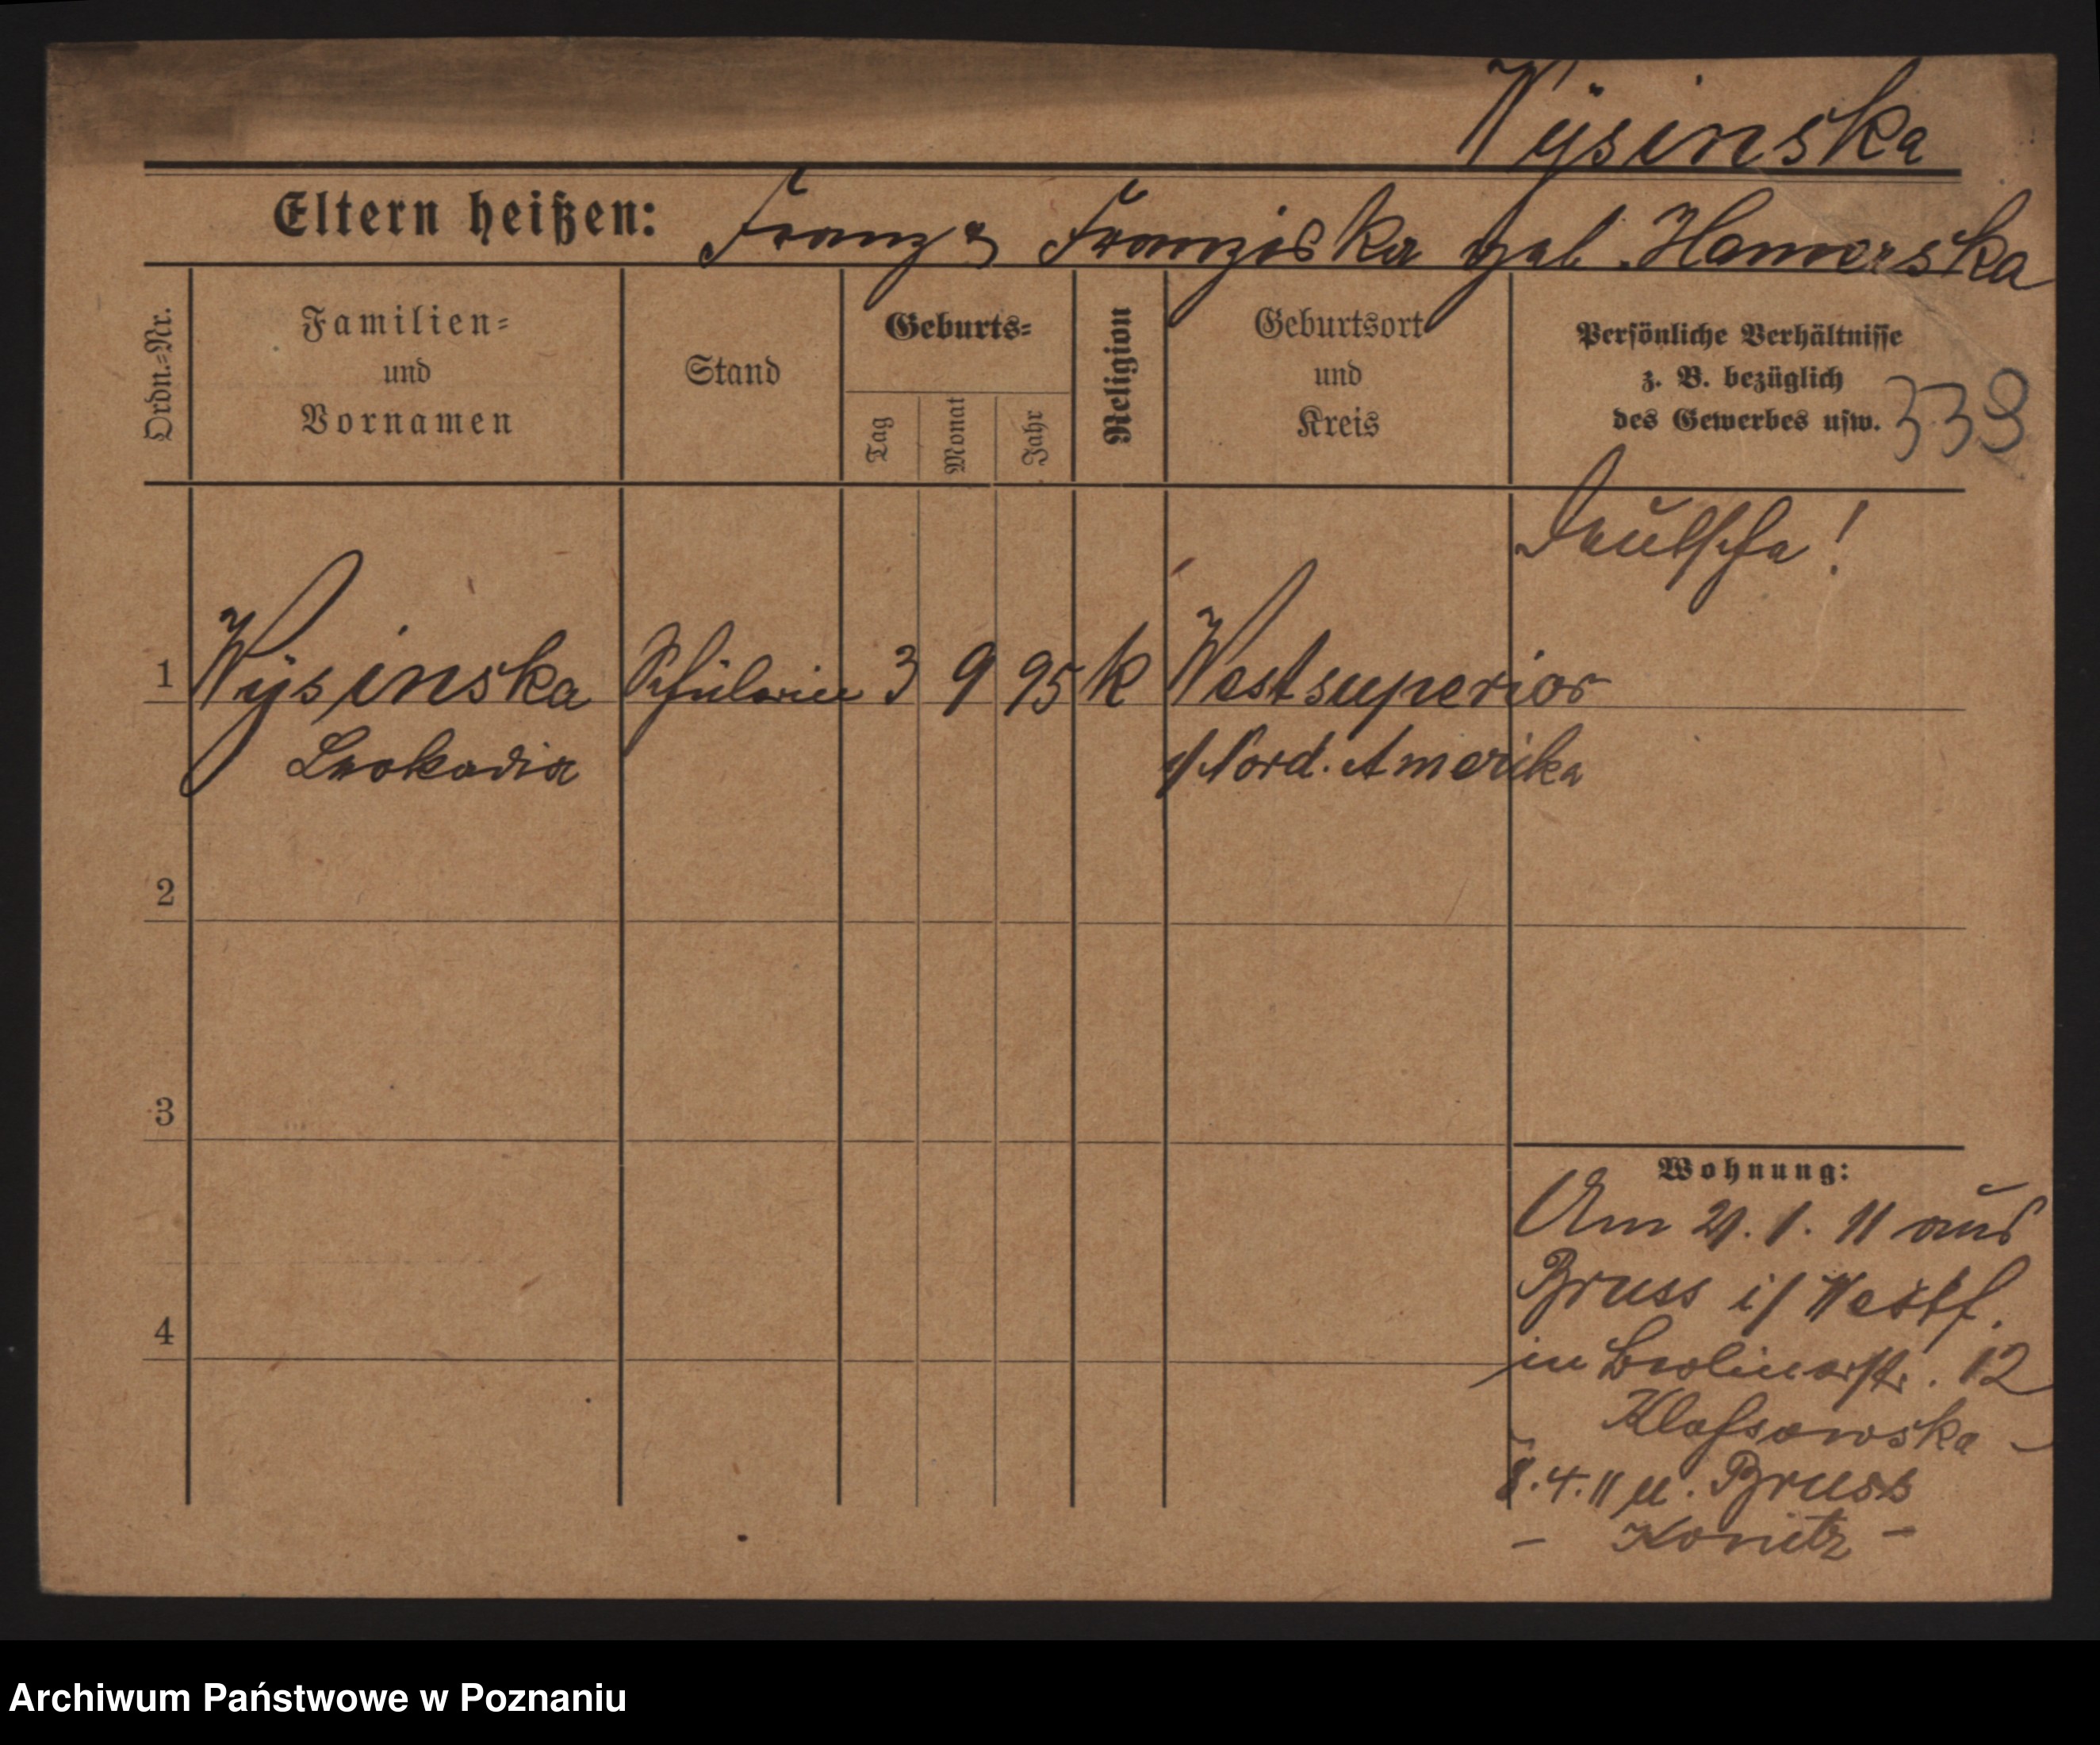 Wÿsinska
Eltern heißen: Franz & Franziska geb. Hamerska
Ordn.-Nr.
Familien- und Vornamen
Stand
Geburts-
Tag
Monat
Jahr
Religion
Geburtsort und Kreis
Persönliche Verhältnisse
z. B. bezüglich
des Gewerbes usw.
339
Deutsche!
1 Wÿsinska Schülerin 3 9 95 k Westsuperior
Leokadia Nord. Amerika
2
3
4
Wohnung:
Am 21. 1. 11 aus
Bruss i/ Westf.
in Berlinerstr. 12
Klossowska -
8.4.11 n. Bruss
- Konitz -
Archiwum Państwowe w Poznaniu